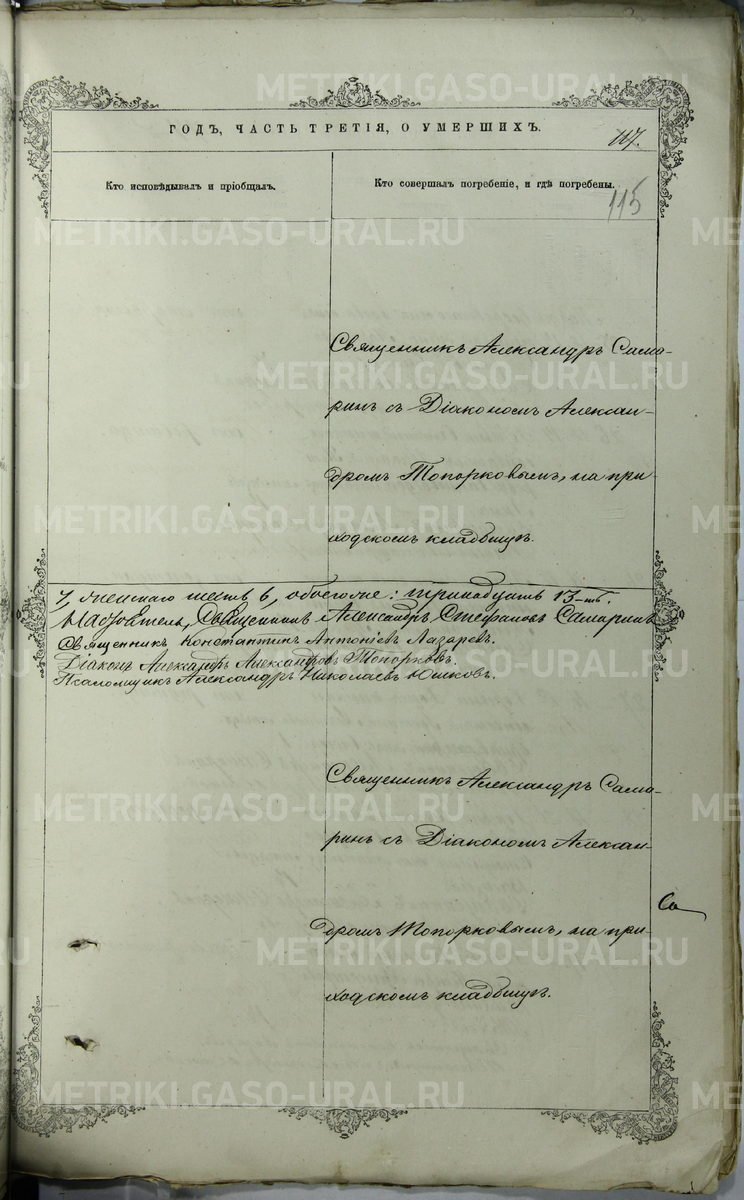 ГОДЪ, ЧАСТЬ ТРЕТІЯ, О УМЕРШИХЪ.
117.
Кто исповѣдывалъ и пріобщалъ.
Кто совершалъ погребеніе, и гдѣ погребены.
115
Священникъ Александръ Сама-
ринъ съ Діакономъ Алексан-
дромъ Топорковымъ, на при-
ходскомъ кладбищѣ.
7, женскаго шесть 6, обоего же: тринадцать 13-ть.
Настоятель, Священникъ Александръ Стефановъ Самаринъ
Священникъ Константинъ Антоніевъ Лазаревъ.
Діаконъ Александръ Александровъ Топорковъ.
Псаломщикъ Александръ Николаевъ Юшковъ.
Священникъ Александръ Сама-
ринъ съ Діакономъ Алексан-
дромъ Топорковымъ, на при-
ходскомъ кладбищѣ.
Са
METRIKI.GASO-URAL.RU